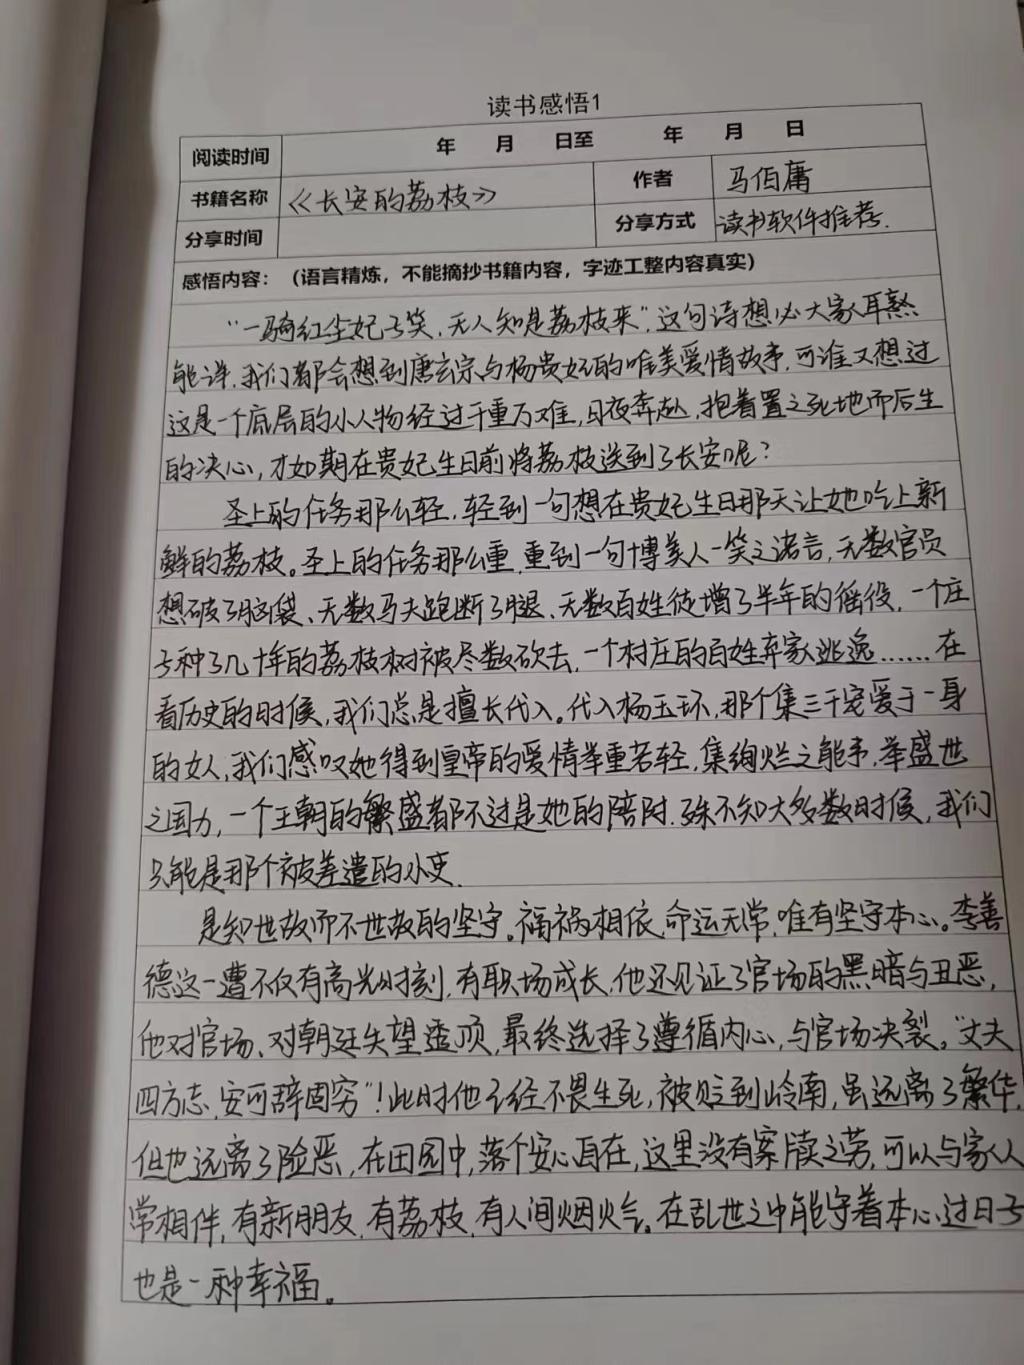 读书感悟1
阅读时间 年 月 日至 年 月 日
书籍名称 《长安的荔枝》 作者 马伯庸
分享时间 分享方式 读书软件推荐.
感悟内容：（语言精炼，不能摘抄书籍内容，字迹工整内容真实）
“一骑红尘妃子笑，无人知是荔枝来”，这句诗想必大家耳熟
能详，我们都会想到唐玄宗与杨贵妃的唯美爱情故事，可谁又想过
这是一个底层的小人物经过千重万难，日夜奔赴，抱着置之死地而后生
的决心，才如期在贵妃生日前将荔枝送到了长安呢？
圣上的任务那么轻，轻到一句想在贵妃生日那天让她吃上新
鲜的荔枝。圣上的任务那么重，重到一句博美人一笑之诺言，无数官员
想破了脑袋、无数马夫跑断了腿、无数百姓徒增了半年的徭役，一个庄
子种了几十年的荔枝树被尽数砍去，一个村庄的百姓弃家逃逸……在
看历史的时候，我们总是擅长代入。代入杨玉环，那个集三千宠爱于一身
的女人，我们感叹她得到皇帝的爱情举重若轻，集绚烂之能事，举盛世
之国力，一个王朝的繁盛都不过是她的陪衬.殊不知大多数时候，我们
只能是那个被差遣的小吏.
是知世故而不世故的坚守。福祸相依，命运无常，唯有坚守本心。李善
德这一遭不仅有高光时刻，有职场成长，他还见证了官场的黑暗与丑恶，
他对官场、对朝廷失望透顶，最终选择了遵循内心，与官场决裂。“丈夫
四方志，安可辞固穷”！此时他已经不畏生死，被贬到岭南，虽远离了繁华，
但也远离了险恶，在田园中，落个安心自在，这里没有案牍之劳，可以与家人
常相伴，有新朋友，有荔枝，有人间烟火气。在乱世之中能守着本心过日子
也是一种幸福。